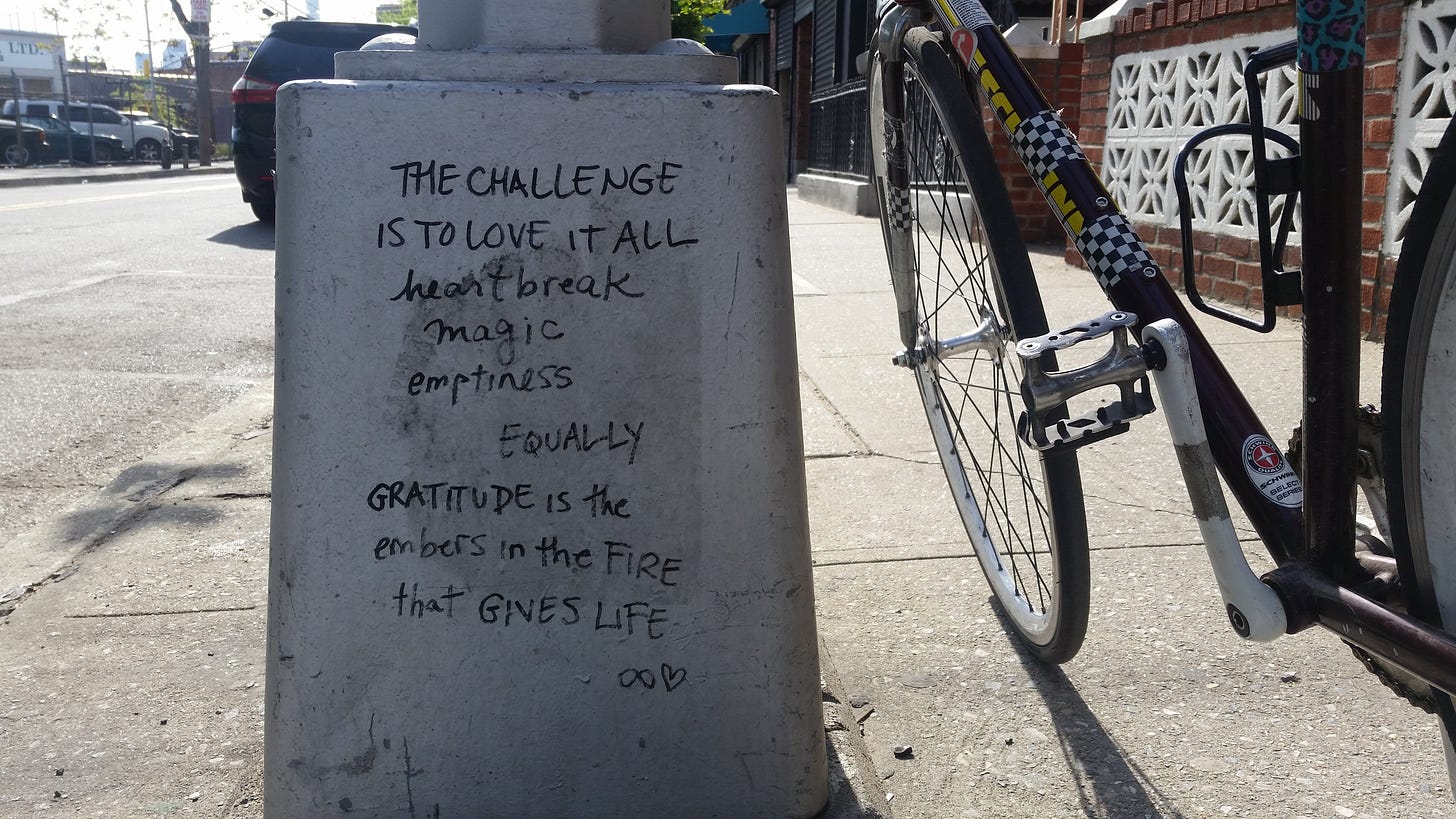 LTD.
THE CHALLENGE
IS TO LOVE IT ALL
heartbreak
magic
emptiness
EQUALLY
GRATITUDE is the
embers in the FIRE
that GIVES LIFE
∞♡
SCHWINN
QUALITY
SCHWINN
SELECT
SERIES